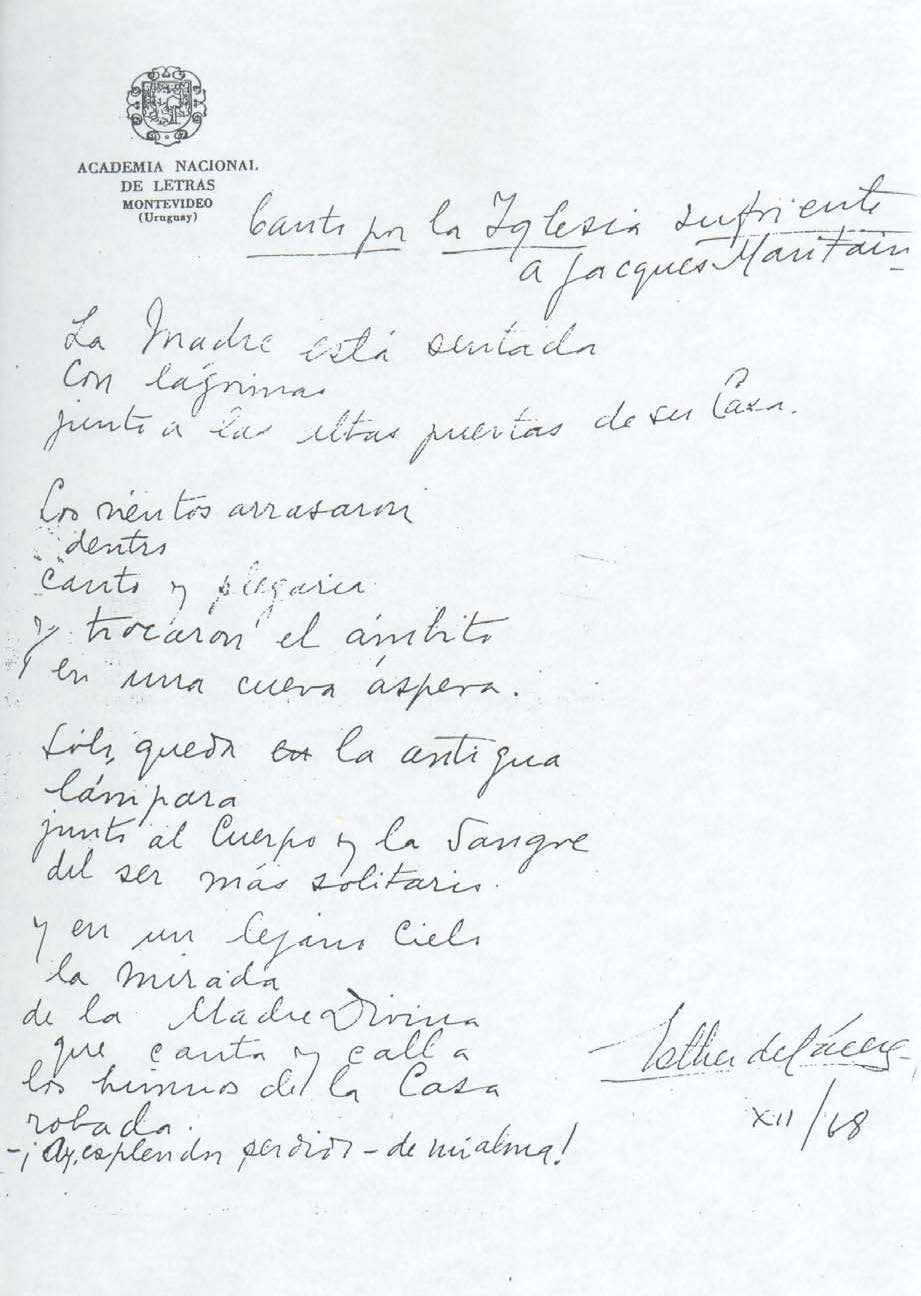 ACADEMIA NACIONAL
DE LETRAS
MONTEVIDEO
(Uruguay)
Canto por la Iglesia sufriente
a Jacques Maritain
La Madre está sentada
con lágrimas
junto a las altas puertas de su Casa.
Los vientos arrasaron
dentro
canto y plegaria
y trocaron el ámbito
en una cueva áspera.
Sólo queda en la antigua
lámpara
junto al Cuerpo y la Sangre
del ser más solitario.
y en un lejano Cielo
la mirada
de la Madre Divina
que canta y calla
los himnos de la Casa
robada.
-¡Ay, esplendor perdido - de mi alma!
Esther de Cáceres
XII/68